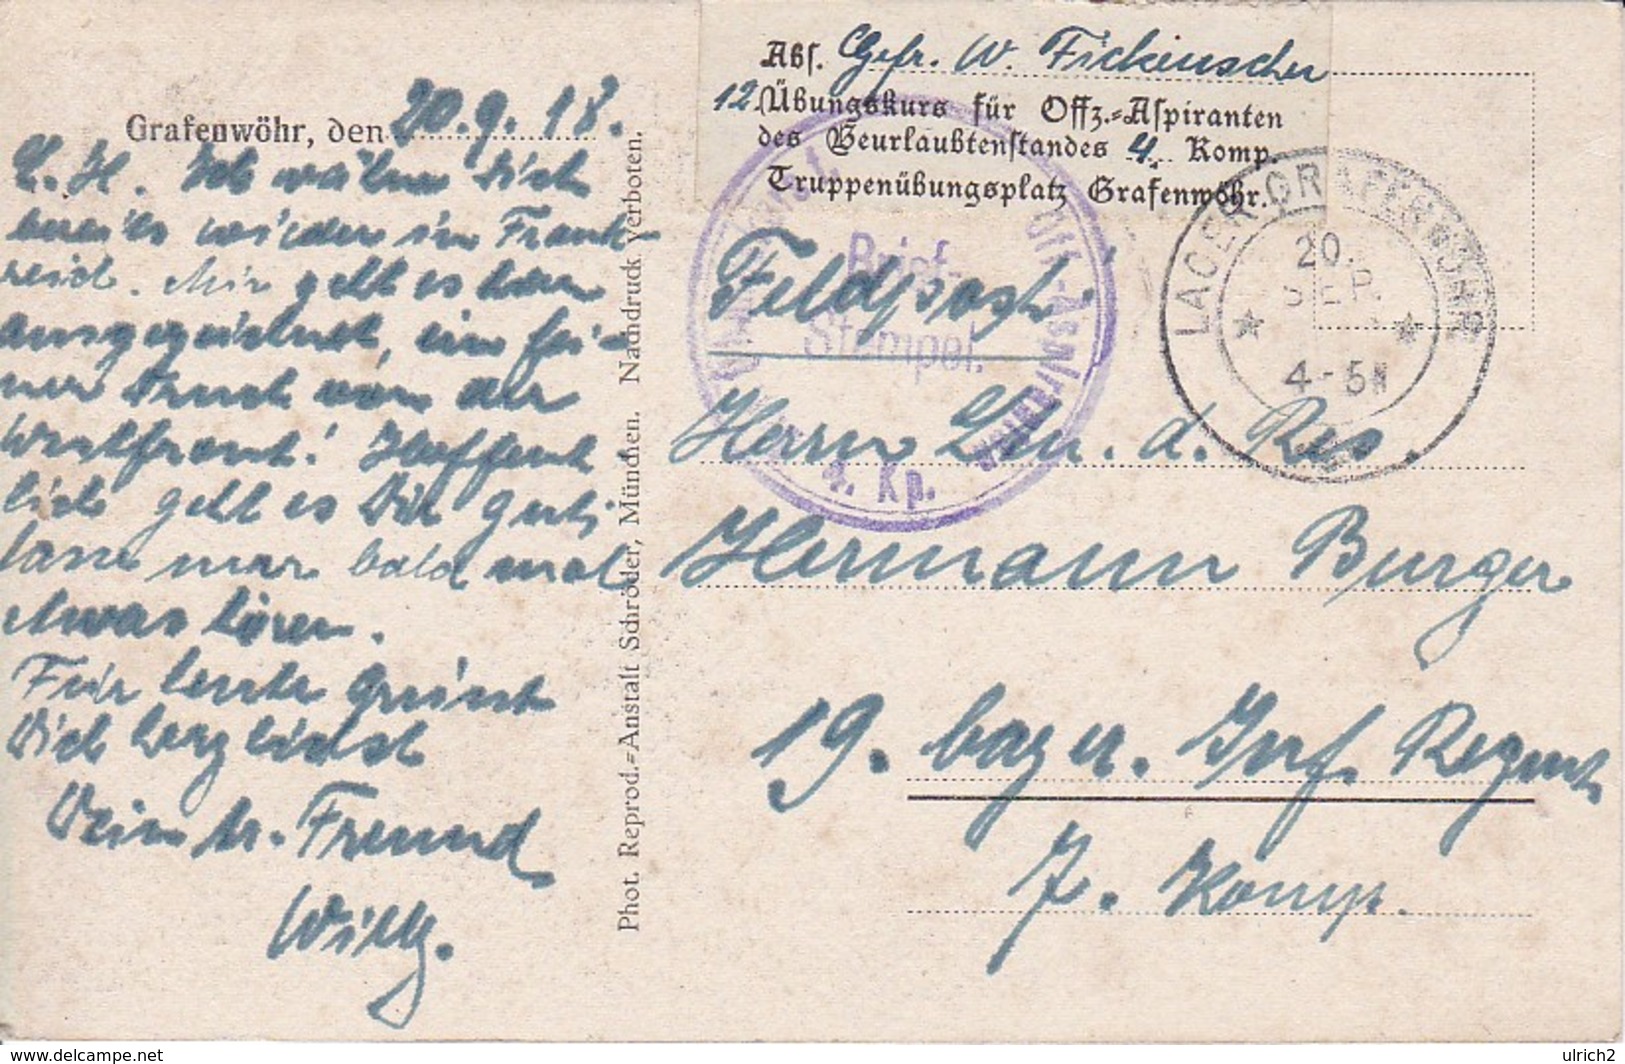 Abs. Gefr. W. Fickenscher
12. Übungskurs für Offz.=Aspiranten
des Beurlaubtenstandes 4. Komp.
Truppenübungsplatz Grafenwöhr.
Grafenwöhr, den 20.9.18.
L. H. Ich wähne Dich
bereits wieder in Frank-
reich. Mir geht es hier
ausgezeichnet, ein fei-
ner Druck von der
Westfront! Hoffent-
lich geht es Dir gut;
lasse nur bald mal
etwas hören.
Für heute grüsst
Dich herzlichst
Dein tr. Freund
Willy.
Phot. Reprod.=Anstalt Schröder, München. Nachdruck verboten.
Feldpost!
Herrn Ltn. d. Res.
Hermann Burger
19. bayer. Inf. Regmt.
7. Komp.
Brief-
Stempel.
Off.-Aspiranten
4. Kp.
LAGER GRAFENWÖHR
20.
SEP.
4-5N
www.delcampe.net
ulrich2